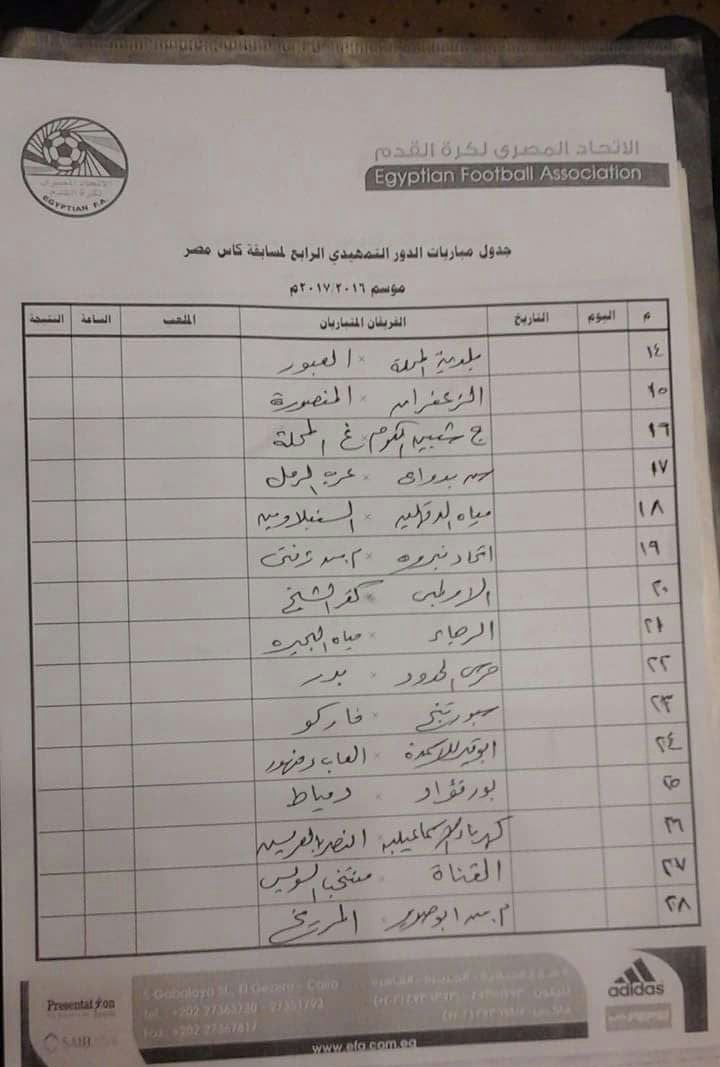 الاتحاد المصرى لكرة القدم
Egyptian Football Association
الاتحاد المصرى
لكرة القدم
EGYPTIAN F.A
جدول مباريات الدور التمهيدي الرابع لمسابقة كاس مصر
موسم ٢٠١٧/٢٠١٦م
م اليوم التاريخ الفريقان المتباريان الملعب الساعة النتيجة
١٤ بلدية المحلة × العبور
١٥ الزعفران × المنصورة
١٦ ج شبين الكوم × غ المحلة
١٧ بدواى × عرب الرمل
١٨ مياه الدقهلية × السنبلاوين
١٩ اتحاد نبروه × م.ش زفتى
٢٠ الاوليمبى × كفر الشيخ
٢١ الرجاء × مياه البحيره
٢٢ حرس الحدود × بدر
٢٣ سبورتنج × فاركو
٢٤ ابوقير للاسمدة × العاب دمنهور
٢٥ بورفؤاد × دمياط
٢٦ كهرباء الاسماعيلية × النصر بالعريش
٢٧ القناة × منتخب السويس
٢٨ م.ش ابوصوير × المريخ
Presentation
SAIB
5 Gabalaya St., El Gezera - Cairo
Tel : +202 27363730 - 27351793
Fax : +202 27367817
www.efa.com.eg
adidas
PEPSI